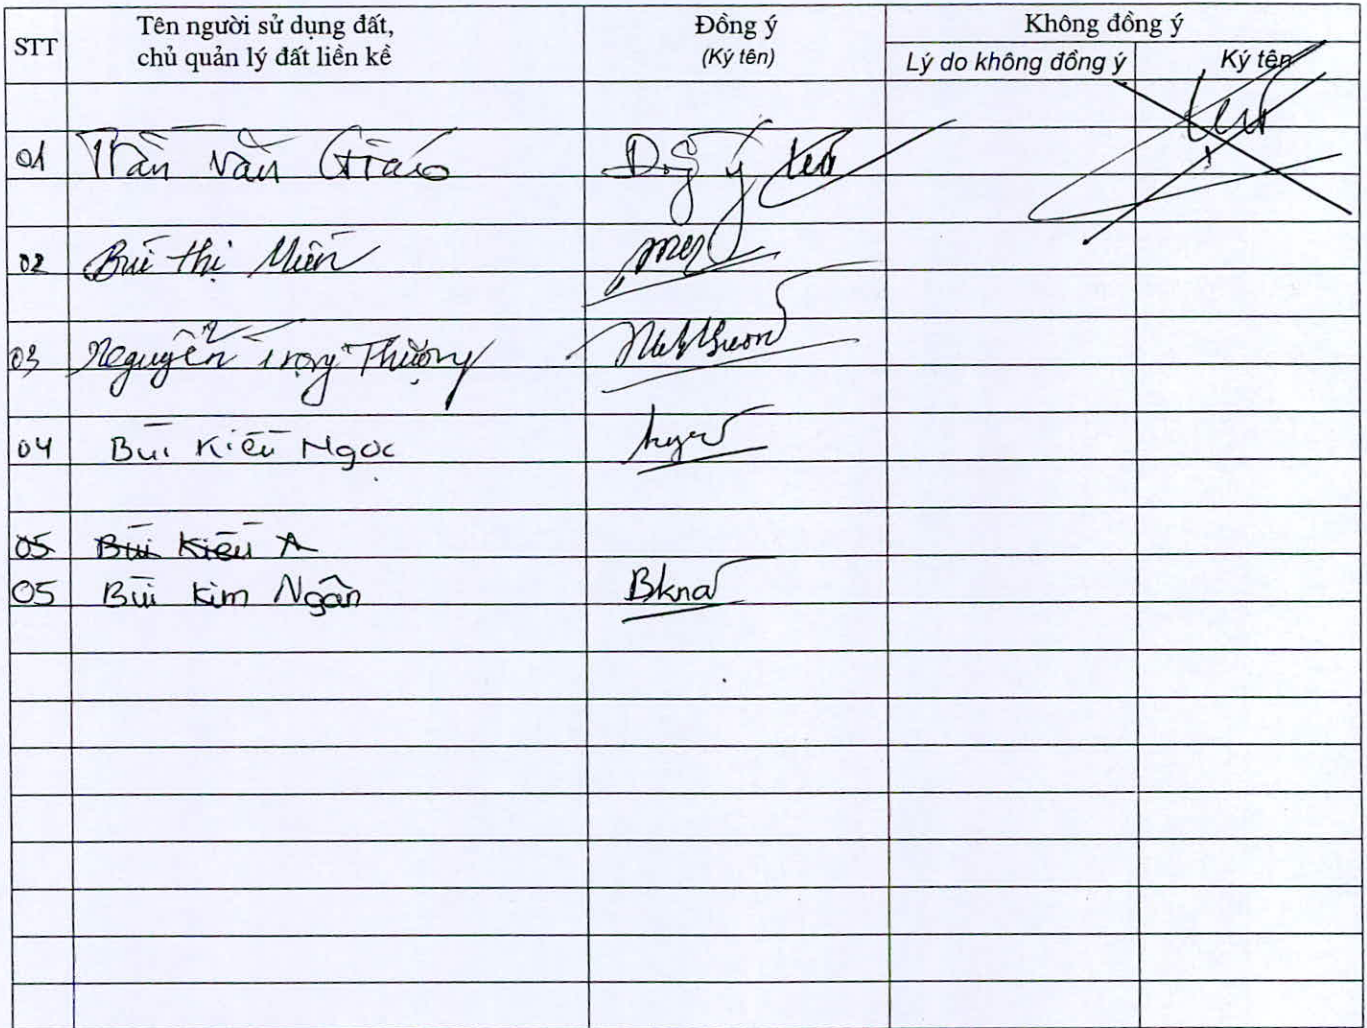 STT
Tên người sử dụng đất,
chủ quản lý đất liền kề
Đồng ý
(Ký tên)
Không đồng ý
Lý do không đồng ý
Ký tên
01 Trần Văn Giáo Đồng ý
02 Bùi thị Miên
03 Nguyễn Trọng Thượng
04 Bùi Kiều Ngọc
05 Bùi Kiều A
05 Bùi Kim Ngân Bkna